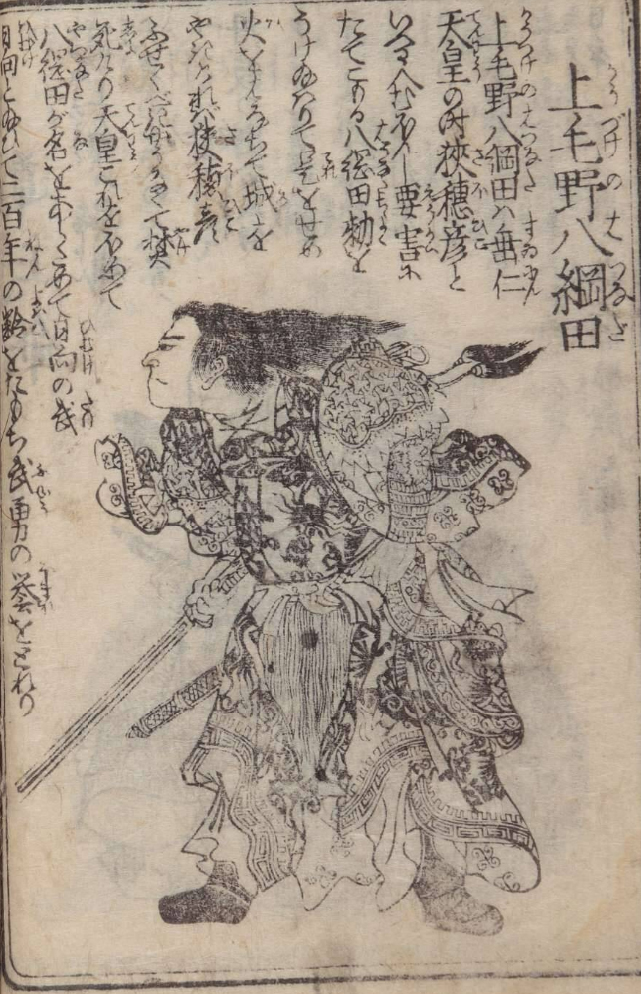 上毛野八綱田
上毛野八綱田ハ垂仁
天皇の時狭穂彦と
いる人むほんし要害に
たてこもる八綱田勅を
うけ給はりて是をせめ
火をはなちて城を
やきけれバ狭穂彦
ふせぐべきやうなくて焚
死けり天皇これをほめて
八綱田が名を あて日向の武
日向と ひて二百年の齢をたもち武勇の誉をとれり